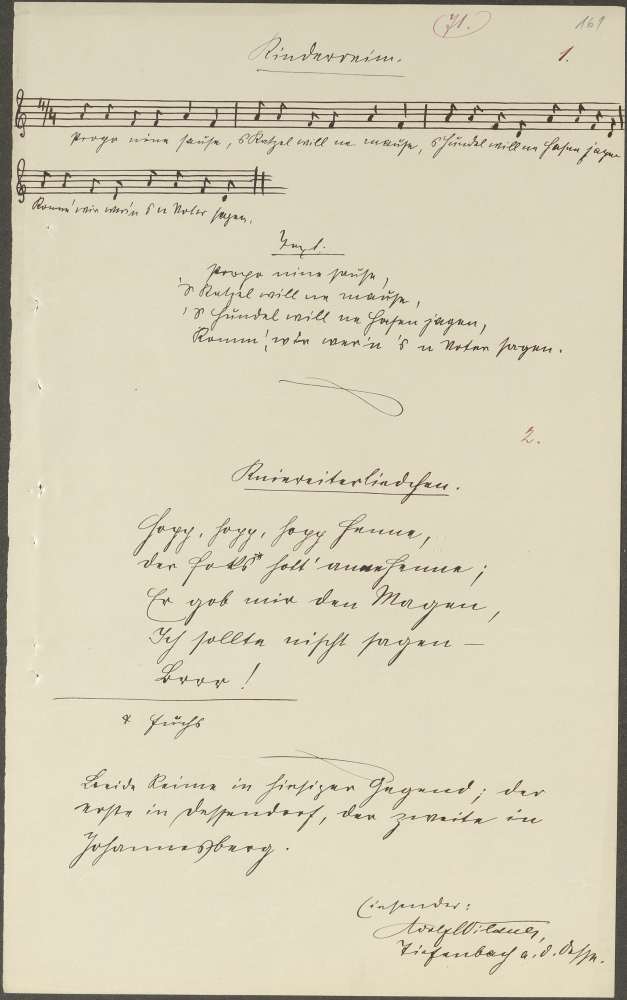 71.
169
Kinderreim.
1.
4/4
Popo nine sause, 's Katzel will ne mause, 's Hundel will ne Hasen jagen
Komm' wir wer'n 's n Voter sagen.
Text.
Popo nine sause,
's Katzel will ne mause,
's Hundel will ne Hasen jagen,
Komm', wir wer'n 's n Voter sagen.
2.
Kniereiterliedchen.
Hopp, hopp, hopp Henne,
der Foks* holt' anne Henne;
Er gob mir den Magen,
Ich sollte nischt sagen –
Brrr!
* Fuchs
Beide Reime in hiesiger Gegend; der
erste in Dessendorf, der zweite in
Johannesberg.
Einsender:
Adolf Wildner,
Tiefenbach a. d. Desse.